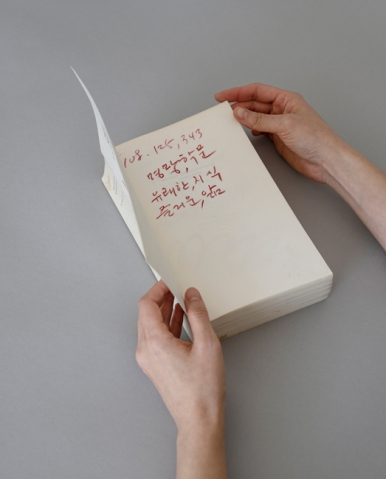 108. 125, 343
명랑, 학문
유쾌한, 지식
즐거운, 앎